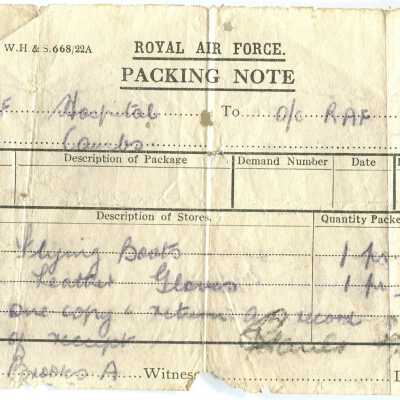 W.H & S. 668/22A
ROYAL AIR FORCE.
PACKING NOTE
F Hospital To O/C RAF
Cambs
Description of Package Demand Number Date
Description of Stores. Quantity Packe
Flying Boots 1 pr
Leather Gloves 1 pr
one copy & return as record
of receipt
Brooks A Witnes